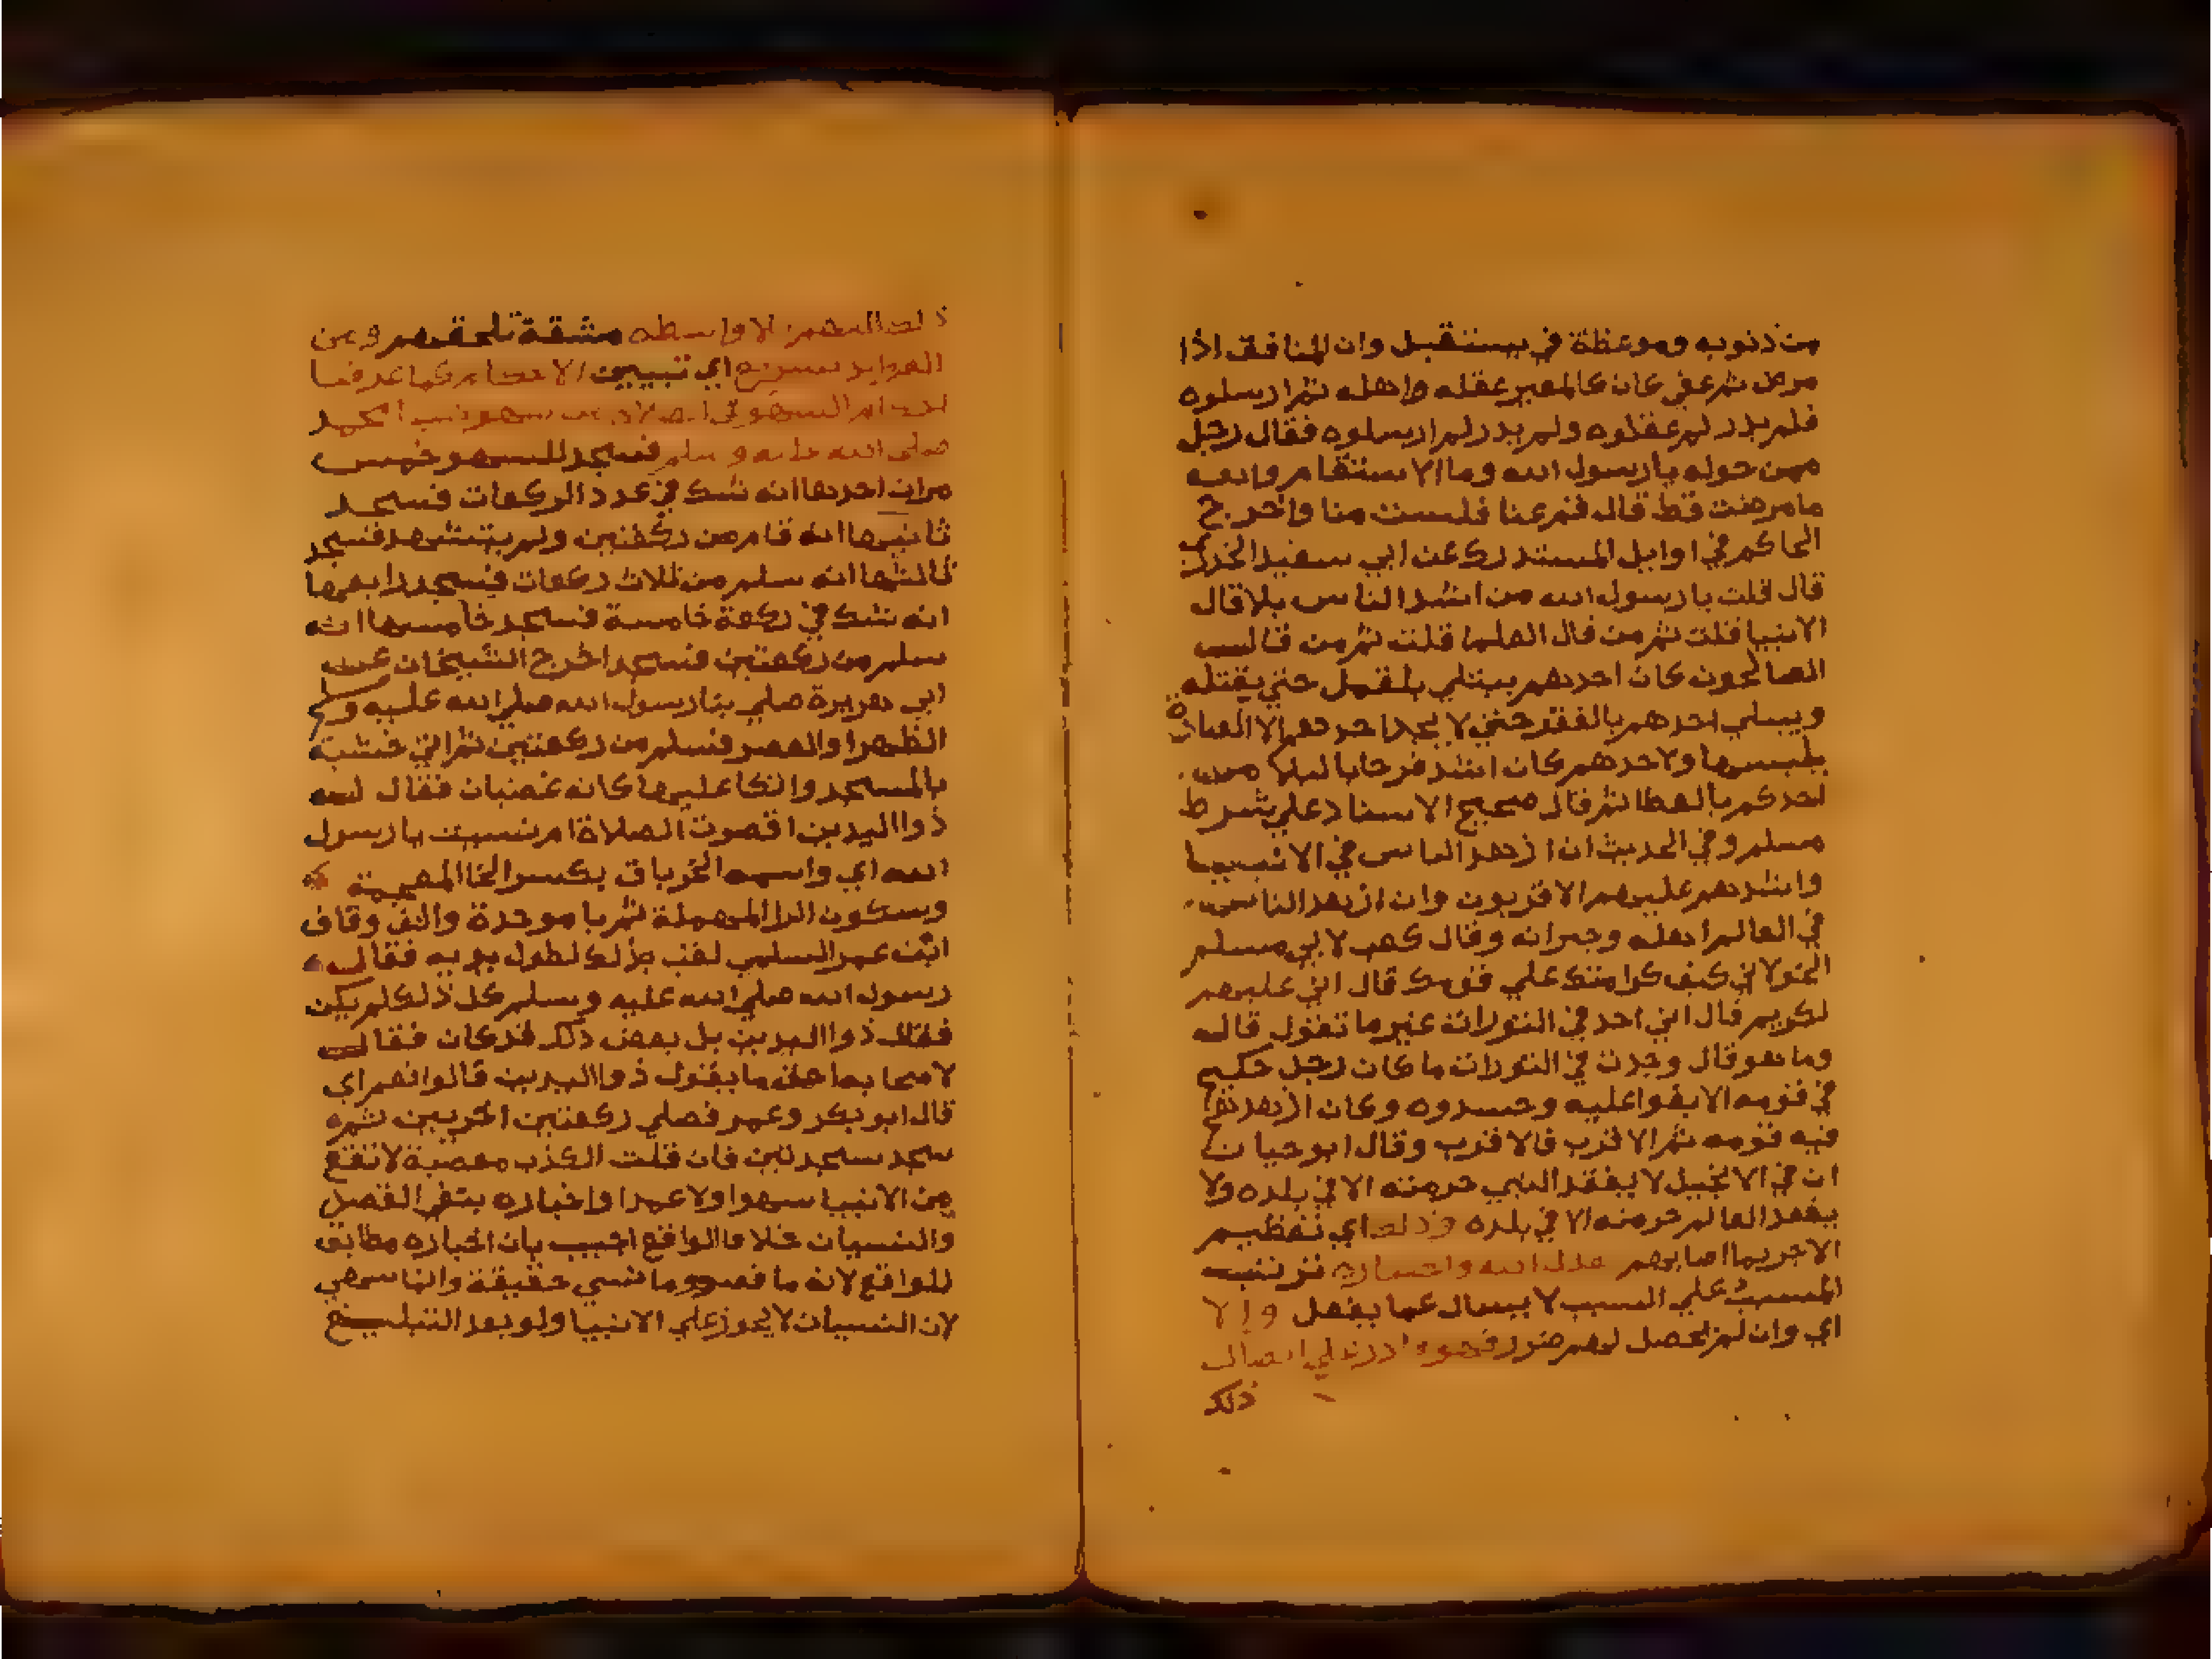 من ذنوبه وموعظة في يستقبل وان المنافق اذا
مرض ثم عفي كان كالبعير عقله واهله ثم ارسلوه
فلم يدر لم عقلوه ولم يدر لم ارسلوه فقال رجل
ممن حوله يا رسول الله وما الاسقام والله
ما مرضت قط قال قم عنا فلست منا واخرج
الحاكم في اوايل المستدرك عن ابي سعيد الخدري
قال قلت يا رسول الله من اشد الناس بلا قال
الانبيا قلت ثم من قال العلما قلت ثم من قال
الصالحون كان احدهم يبتلي بالقمل حتي يقتله
ويبتلي احدهم بالفقر حتي لا يجد احدهم الا العباة
يلبسها ولاحدهم كان اشد فرحا بالبلا من
احدكم بالعطا ثم قال صحيح الاسناد علي شرط
مسلم وفي الحديث ان ازهد الناس في الانبيا
واشدهم عليهم الاقربون وان ازهد الناس
في العالم اهله وجيرانه وقال كعب لابي مسلم
الخولاني كيف كرامتك علي قومك قال اني عليهم
لكريم قال اني اجد في التورات غير ما تقول قال
وما هو قال وجدت في التورات ما كان رجل حكيم
في قومه الا بغوا عليه وحسدوه وكان ازهدهم
فيه قومه ثم الاقرب فالاقرب وقال ابو حيان
ان في الانجيل لا يفقد النبي حرمته الا في بلده ولا
يفقد العالم حرمته الا في بلده وذلك اي تعظيم
الاجر بما اصابهم عدل الله واحسانه ترتب
المسبب علي السبب لا يسال عما يفعل والا
اي وان لم يحصل لهم ضرر فهو قادر علي ايصال
ذلك
ذلك اليهم بلا واسطه مشقة تلحقهم ومن
الفوايد تشريع اي تبيين الاحكام كما عرفنا
احكام السهو في الصلاة من سهو نبينا محمد
صلي الله عليه وسلم فسجد للسهو خمس
مرات احدها انه شك في عدد الركعات فسجد
ثانيها انه قام من ركعتين ولم يتشهد فسجد
ثالثها انه سلم من ثلاث ركعات فسجد رابعها
انه شك في ركعة خامسة فسجد خامسها انه
سلم من ركعتين فسجد اخرج الشيخان عن
ابي هريرة صلي بنا رسول الله صلي الله عليه وسلم
الظهر او العصر فسلم من ركعتين ثم اتي خشبة
بالمسجد واتكا عليها كانه غضبان فقال له
ذوا اليدين اقصرت الصلاة ام نسيت يا رسول
الله اي واسمه الخرباق بكسر الخا المعجمة
وسكون الرا المهملة ثم با موحدة والف وقاف
ابن عمر السلمي لقب بذلك لطول يديه فقال
رسول الله صلي الله عليه وسلم كل ذلك لم يكن
فقال ذوا اليدين بل بعض ذلك قد كان فقال
لاصحابه احق ما يقول ذوا اليدين قالوا نعم اي
قال ابو بكر وعمر فصلي ركعتين اخريين ثم
سجد سجدتين فان قلت الكذب معصية لا تقع
من الانبيا سهوا ولا عمدا واخباره بنفي القصر
والنسيان خلاف الواقع اجيب بان اخباره مطابق
للواقع لانه ما قصر وما نسي حقيقة وانما سهي
لان النسيان لا يجوز علي الانبيا ولو بعد التبليغ